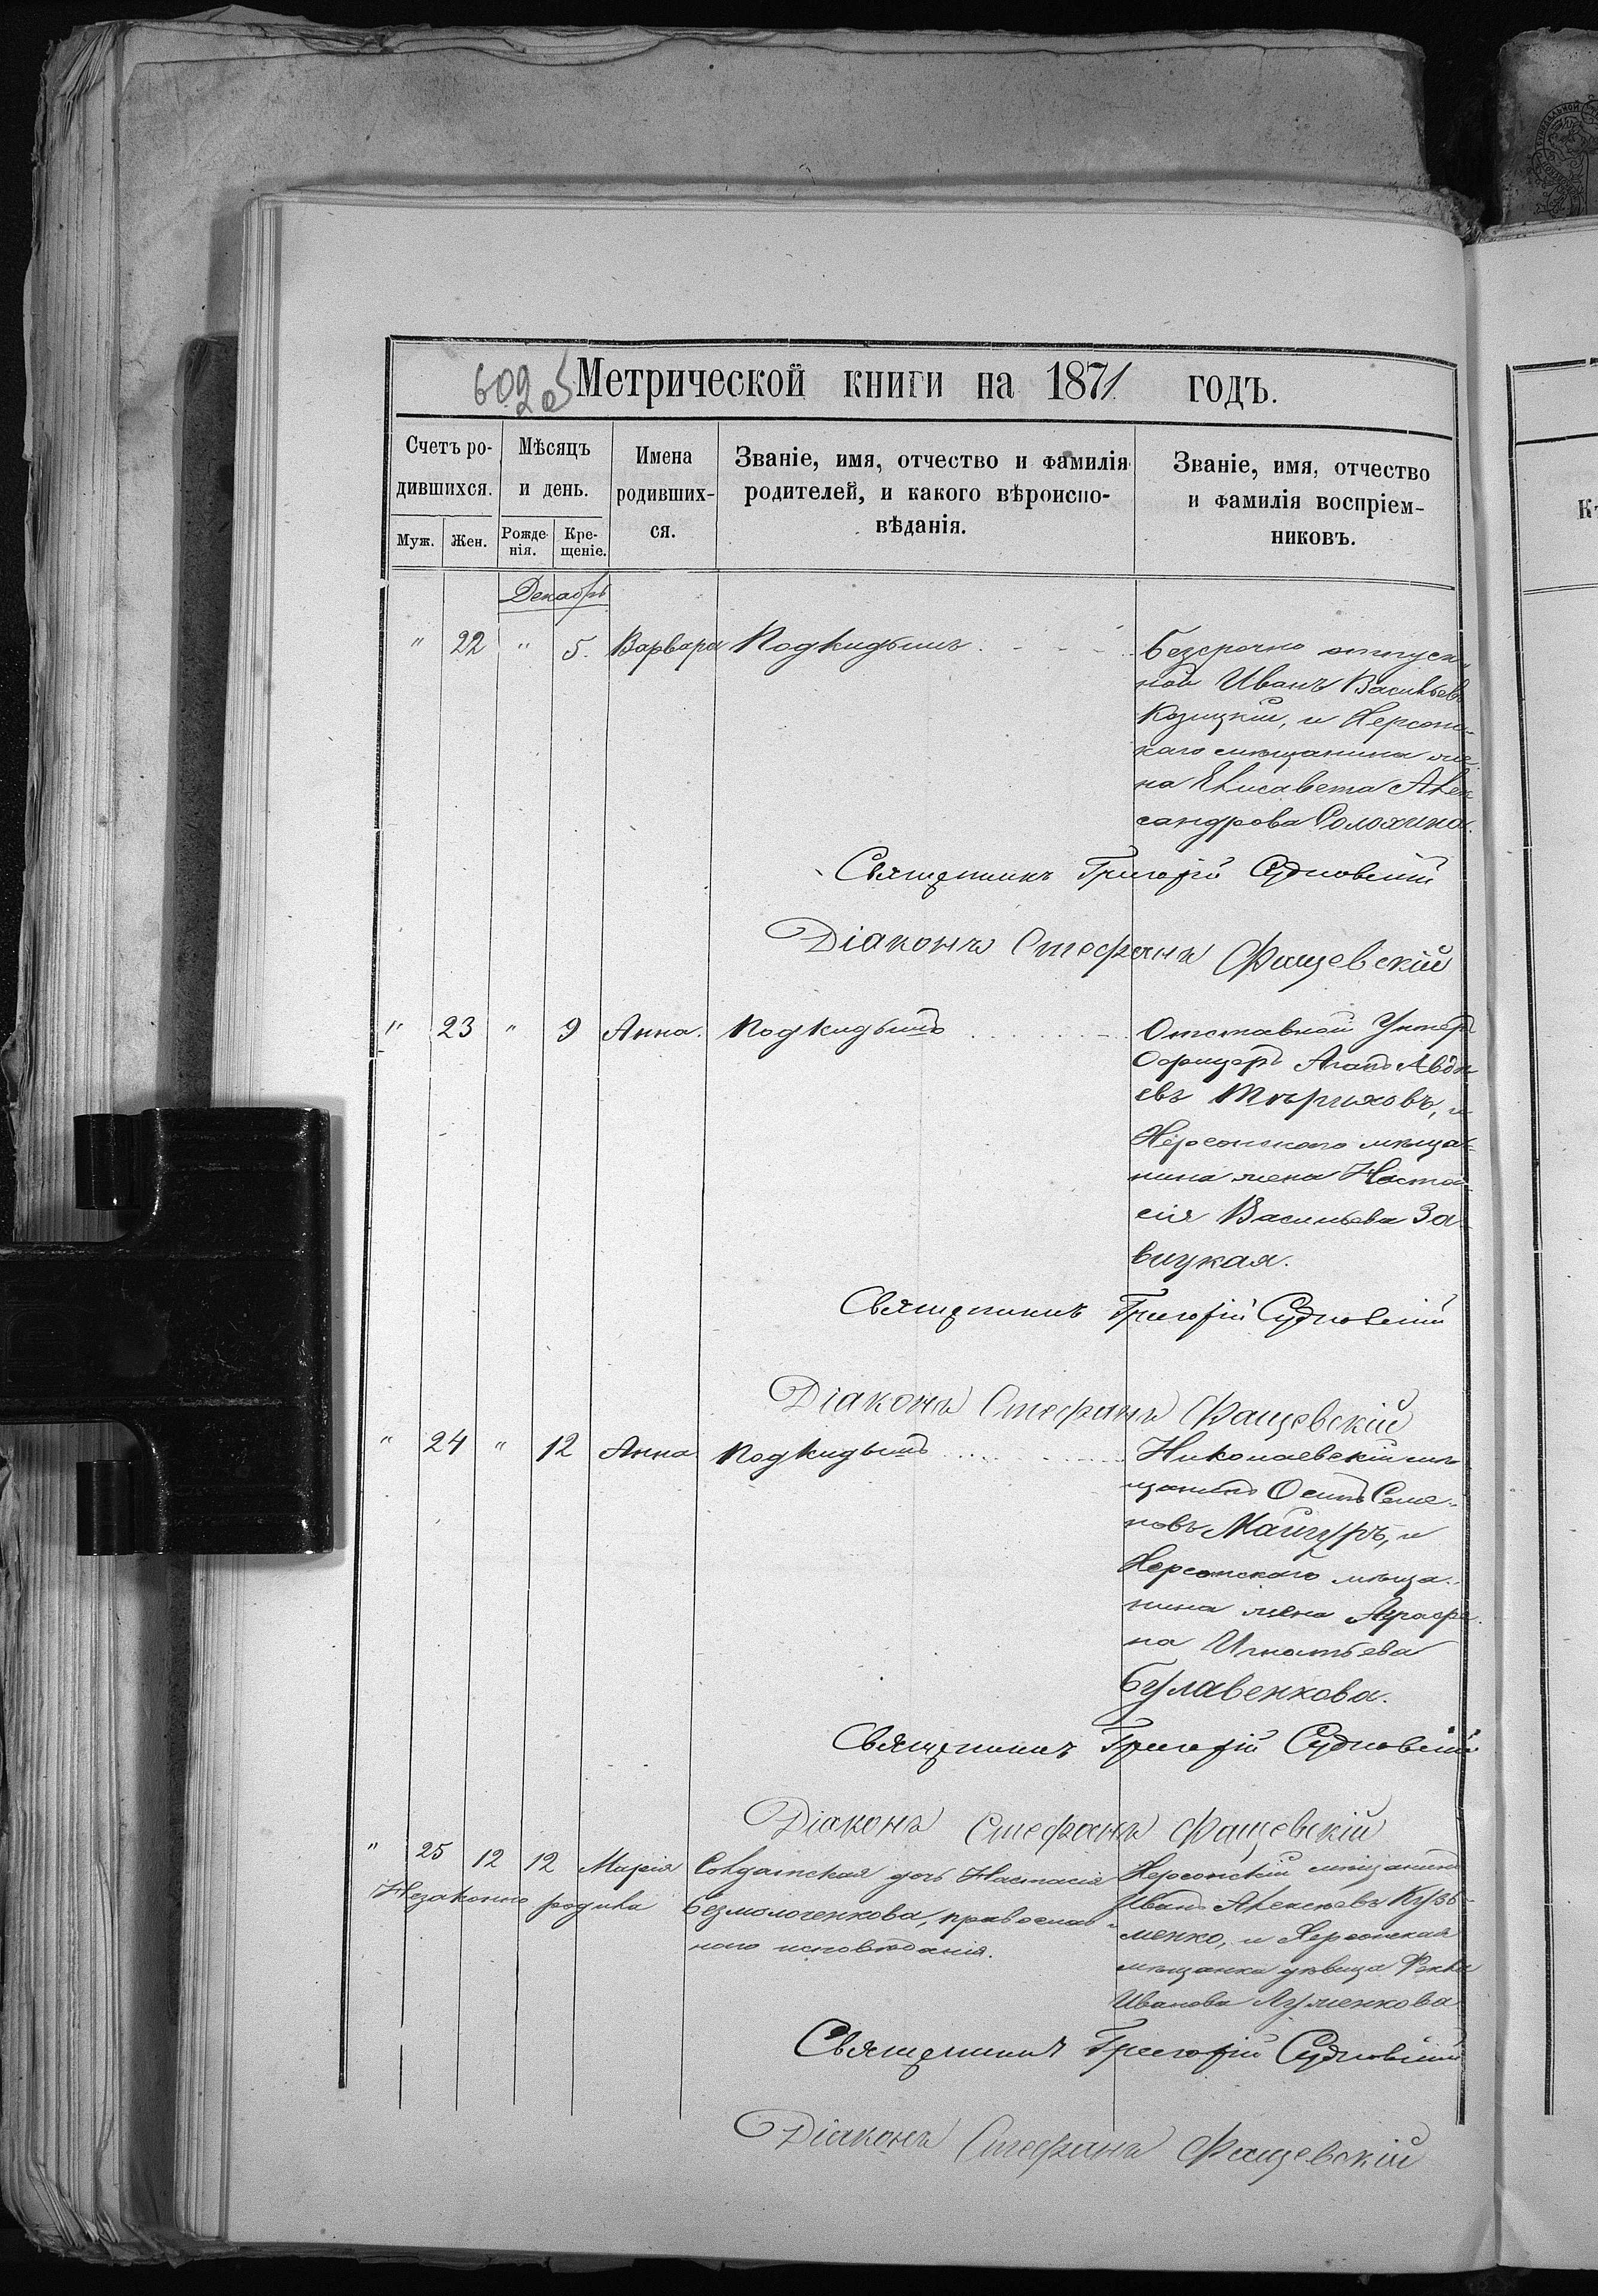 609 об
Метрической книги на 1871 годъ.
Счетъ ро-
дившихся.
Муж. Жен.
Мѣсяцъ
и день.
Рожде
нія.
Кре-
щеніе.
Имена
родивших-
ся.
Званіе, имя, отчество и фамилія
родителей, и какого вѣроиспо-
вѣданія.
Званіе, имя, отчество
и фамилія воспріем-
никовъ.
Декабрь
" 22 " 5. Варвара Подкидышъ
Безсрочно отпуск-
ной Иванъ Васильевъ
Козицкій, и Херсонс-
каго мѣщанина же-
на Елисавета Алек
сандрова Солохина.
Священникъ Григорій Судковскій
Діаконъ Стефанъ Фащевскій
" 23 " 9 Анна. Подкидышъ
Отставной Унтеръ
Офицеръ Агапъ Авдѣ
евъ и
Херсонскаго мѣща-
нина жена Наста-
сія Васильева За-
вицкая.
Священникъ Григорій Судковскій
Діаконъ Стефанъ Фащевскій
" 24 " 12 Анна Подкидышъ
Николаевскій мѣ
щанинъ Осипъ Семе-
новъ Майгуръ, и
Херсонскаго мѣща-
нина жена Аграфе-
на Игнатьева
Булавенкова.
Священникъ Григорій Судковскій
Діаконъ Стефанъ Фащевскій
" 25 12 12 Марія
Незаконно родила
Солдатская дочь Настасія
Безмолоченкова, православ-
наго исповѣданія.
Херсонскій мѣщанинъ
Иванъ Алексѣевъ Кузь-
менко, и Херсонская
мѣщанка дѣвица Фекла
Иванова
Священникъ Григорій Судковскій
Діаконъ Стефанъ Фащевскій